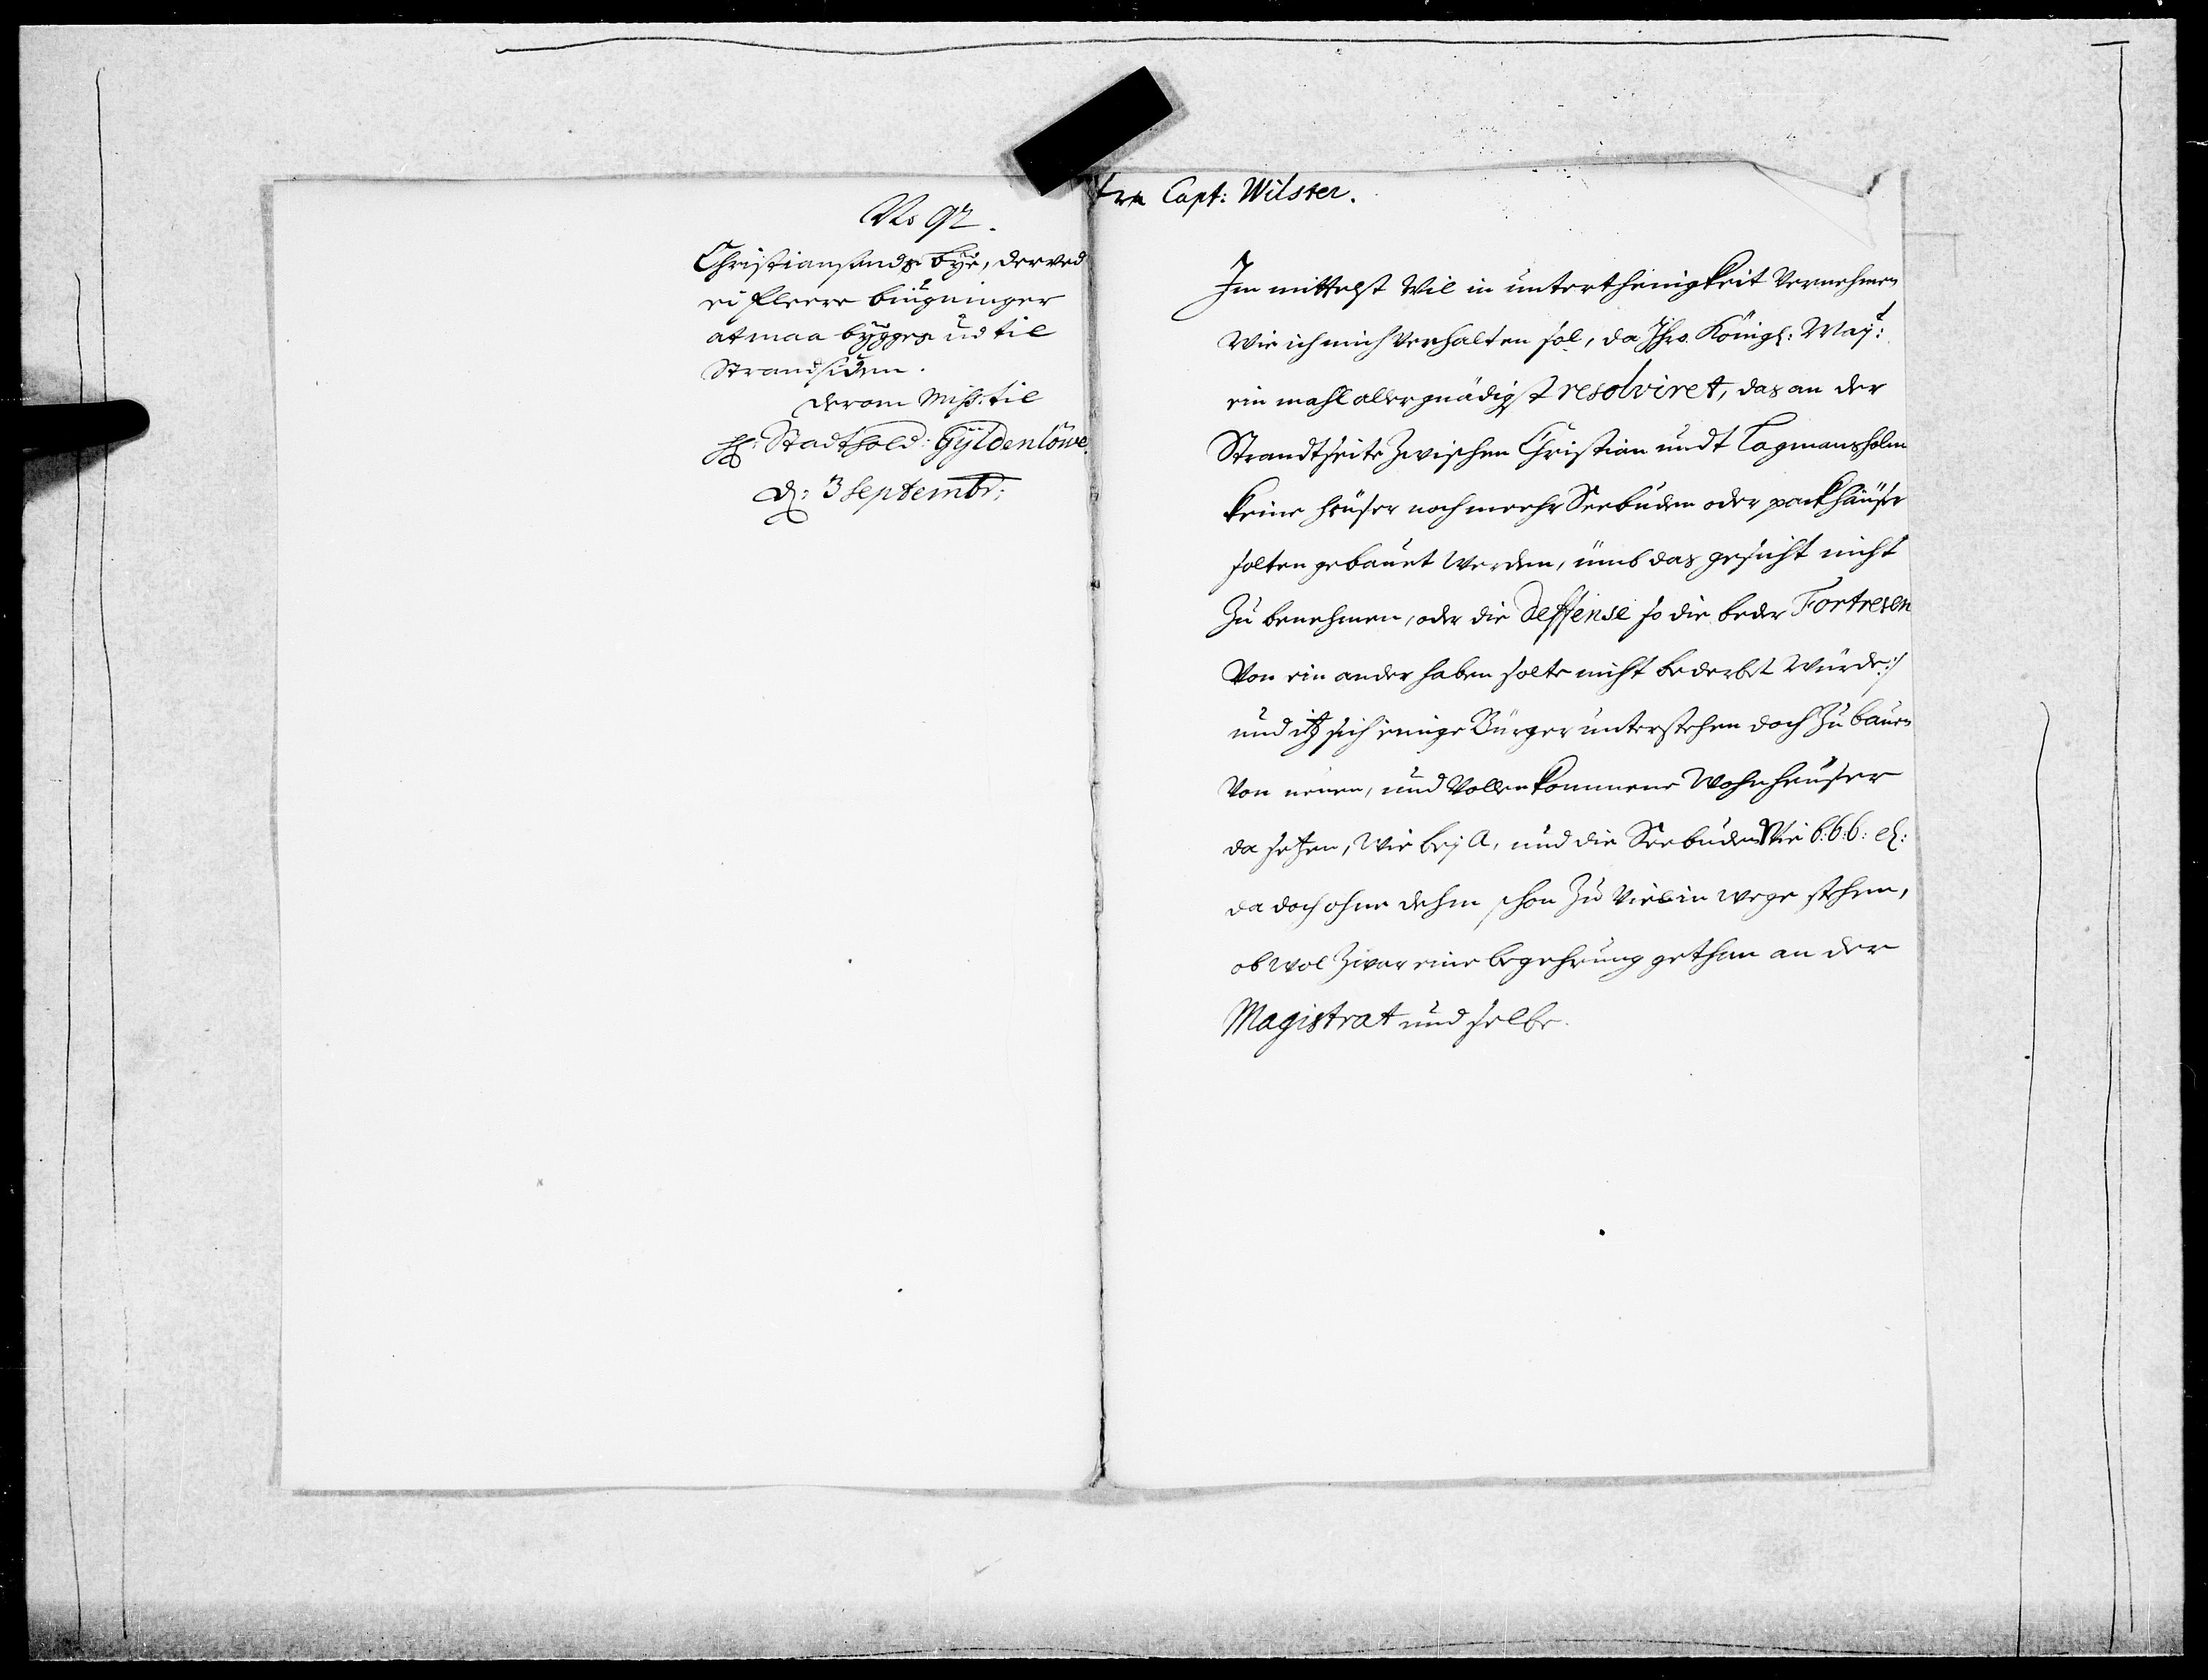 No 92.
Christiansands bye, derved
ei fleere biugninger
at maa bygges ud til
Strandsiden.
derom Miss: til
H: Stadthold: Gyldenlöwe.
d: 3 Septembr:
fra Capt: Wilster.
Im mittelst Wil in unterthenigkeit Vernehmen
Wie ich mich Verhalten sol, da Ihro Königl: Mayt:
ein mahl allergnädigst resolviret, das an der
Strandtseite Zwischen Christian undt Lagmansholm
keine heüser noch meehr Seebuden oder packhäuser
solten gebauet Werden, umb das gesicht nicht
Zu benehmen, oder die deffense so die beder Fortresen
Von ein ander haben solte nicht bederbet Würde:/
und itz sich einige Bürger unterstehen doch Zu bauen
Von neuen, und Vollenkommene Wohnheuser
da setzen, Wie bej A, und die Seebuden Wie b:b:b: et:
da doch ohne dehm schon Zu Viel in wege stehen,
ob wol Zwar eine begehrung gethan an der
Magistrat und selbe.